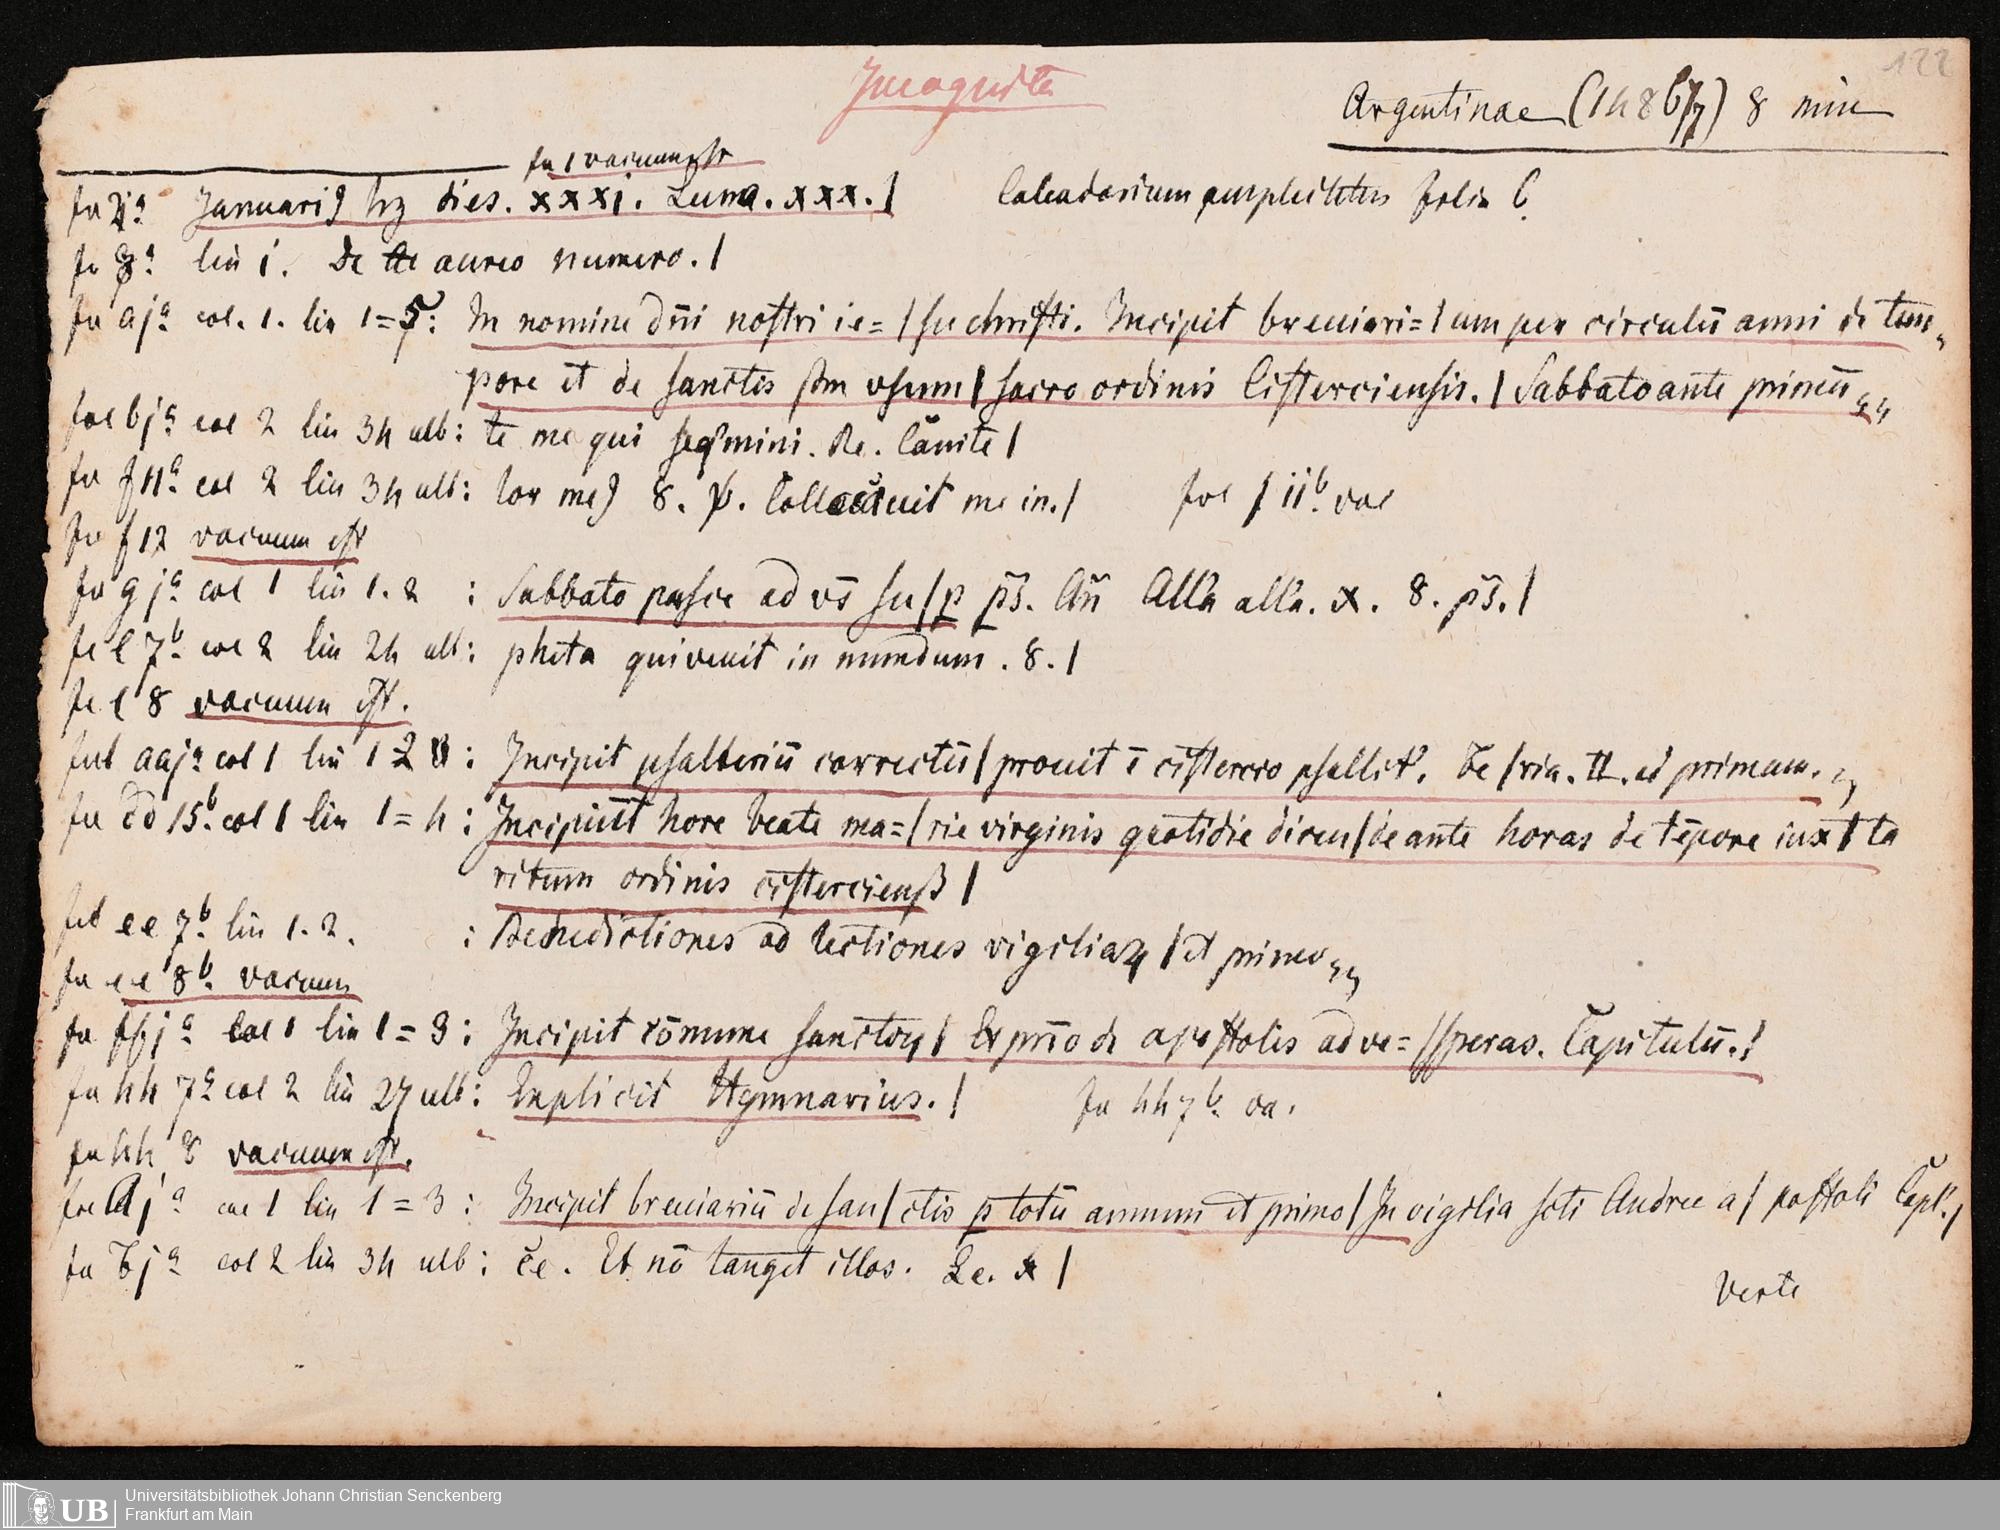 122
Incognita
Argentinae (1486/7) 8 min
fo 1 vacuum est
fo 2ª Januariꝰ hꝫ dies. xxxi. Luna. xxx. / Calendarium complectitur folia 6
fo 8ª lin 1. De aureo numero. /
fo ajª col. 1. lin 1=5: In nomine dn̄i nostri ie= / su christi. Incipit breuiari= / um per circulū anni de tem„
pore et de sanctis scdm vsum / sacro ordinis Cisterciensis. / Sabbato ante primū „„
fol bjª col 2 lin 34 ult: te me qui seqmini. Re. Cāuite /
fo f 11ª col 2 lin 34 ult: tor meꝰ 8. p. Collocauit me in. / fol f 11ᵇ vac
fo f 12 vacuum est
fo g jª col 1 lin 1. 2 : Sabbato pasce ad vs̄ su / ꝑ ps̄. Añ Alla alla. x. 8. ps̄. /
fo l 7ᵇ col 2 lin 24 ult: pheta qui venit in mundum. 8. /
fo l 8 vacuum est.
fol aajª col 1 lin 1 2 : Incipit psalteriū correctū / prouit ī cistercio psallit'. Fe / ria. II. ad primam. „
fo dd 15ᵇ col 1 lin 1=4: Incipiūt hore beate ma= / rie virginis quotidie dicen / de ante horas de tēpore iux / ta
ritum ordinis cistercienß /
fol ee 7ᵇ lin 1. 2. : Benedictiones ad lectiones vigiliaꝝ / et primo „„
fo ee 8ᵇ vacuum
fo ffjª col 1 lin 1=3: Incipit cōmune sanctoꝝ / Et pmo de apostolis ad ve= / speras. Capitulū. /
fo hh 7ª col 2 lin 27 ult: Explicit Hymnarius. / fo hh 7ᵇ va.
fo hh 8 vacuum est.
fol Ajª col 1 lin 1=3: Incipit breuiariū de san / ctis ꝑ totū annum et primo / In vigilia scti Andree a / postoli Capl'. /
fo Bjª col 2 lin 34 ult: ce. Et nō tanget illos. Le. x /
Verte
UB
Universitätsbibliothek Johann Christian Senckenberg
Frankfurt am Main